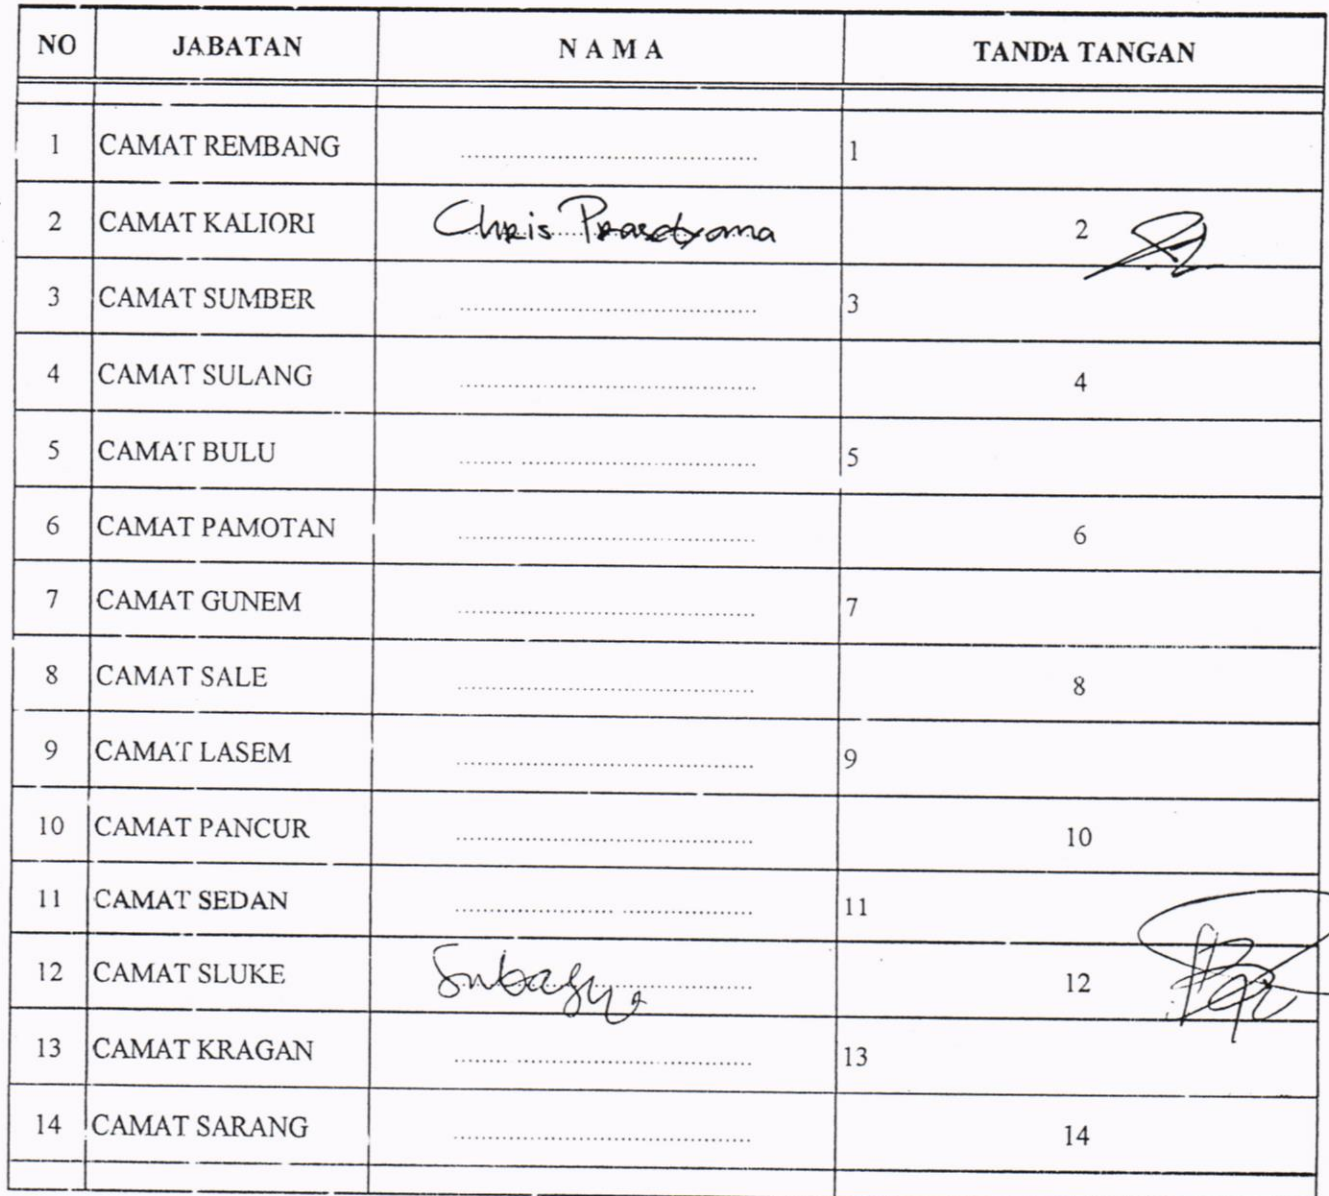 NO JABATAN N A M A TANDA TANGAN
1 CAMAT REMBANG .......................................... 1
2 CAMAT KALIORI Chris Prasetyama 2
3 CAMAT SUMBER .......................................... 3
4 CAMAT SULANG .......................................... 4
5 CAMAT BULU .......................................... 5
6 CAMAT PAMOTAN .......................................... 6
7 CAMAT GUNEM .......................................... 7
8 CAMAT SALE .......................................... 8
9 CAMAT LASEM .......................................... 9
10 CAMAT PANCUR .......................................... 10
11 CAMAT SEDAN .......................................... 11
12 CAMAT SLUKE 12
13 CAMAT KRAGAN .......................................... 13
14 CAMAT SARANG .......................................... 14